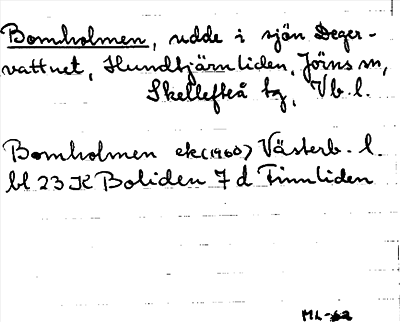 Bomholmen, udde i sjön Deger-
vattnet, Hundtjärnliden, Jörns sn,
Skellefteå tg, Vb. l.
Bomholmen ek (1960) Västerb. l.
bl 23 K Boliden 7 d Finnliden
ML-62